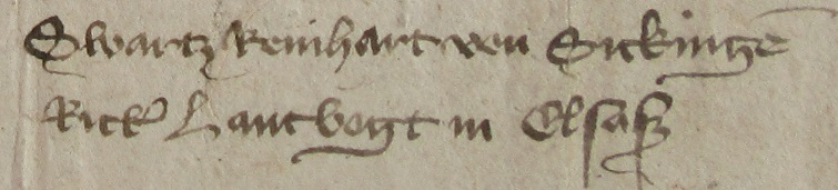 Swartz Reinhart von Sickinge
Ritt' Lantvogt in Elsasz